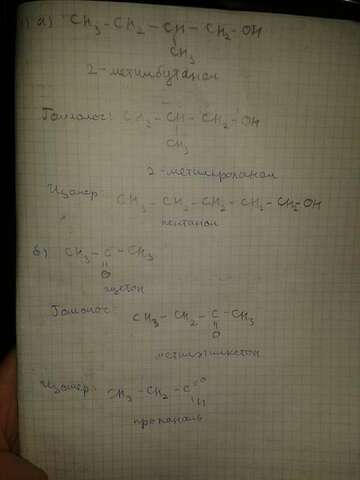 1) а) CH₃ – CH₂ – CH – CH₂ – OH
CH₃
2-метилбутанол
Гомолог: CH₃ – CH – CH₂ – OH
CH₃
2-метилпропанол
Изомер: CH₃ – CH₂ – CH₂ – CH₂ – CH₂ – OH
пентанол
б) CH₃ – C – CH₃
O
ацетон
Гомолог:
CH₃ – CH₂ – C – CH₃
O
метилэтилкетон
Изомер: CH₃ – CH₂ – C
O
H
пропаналь